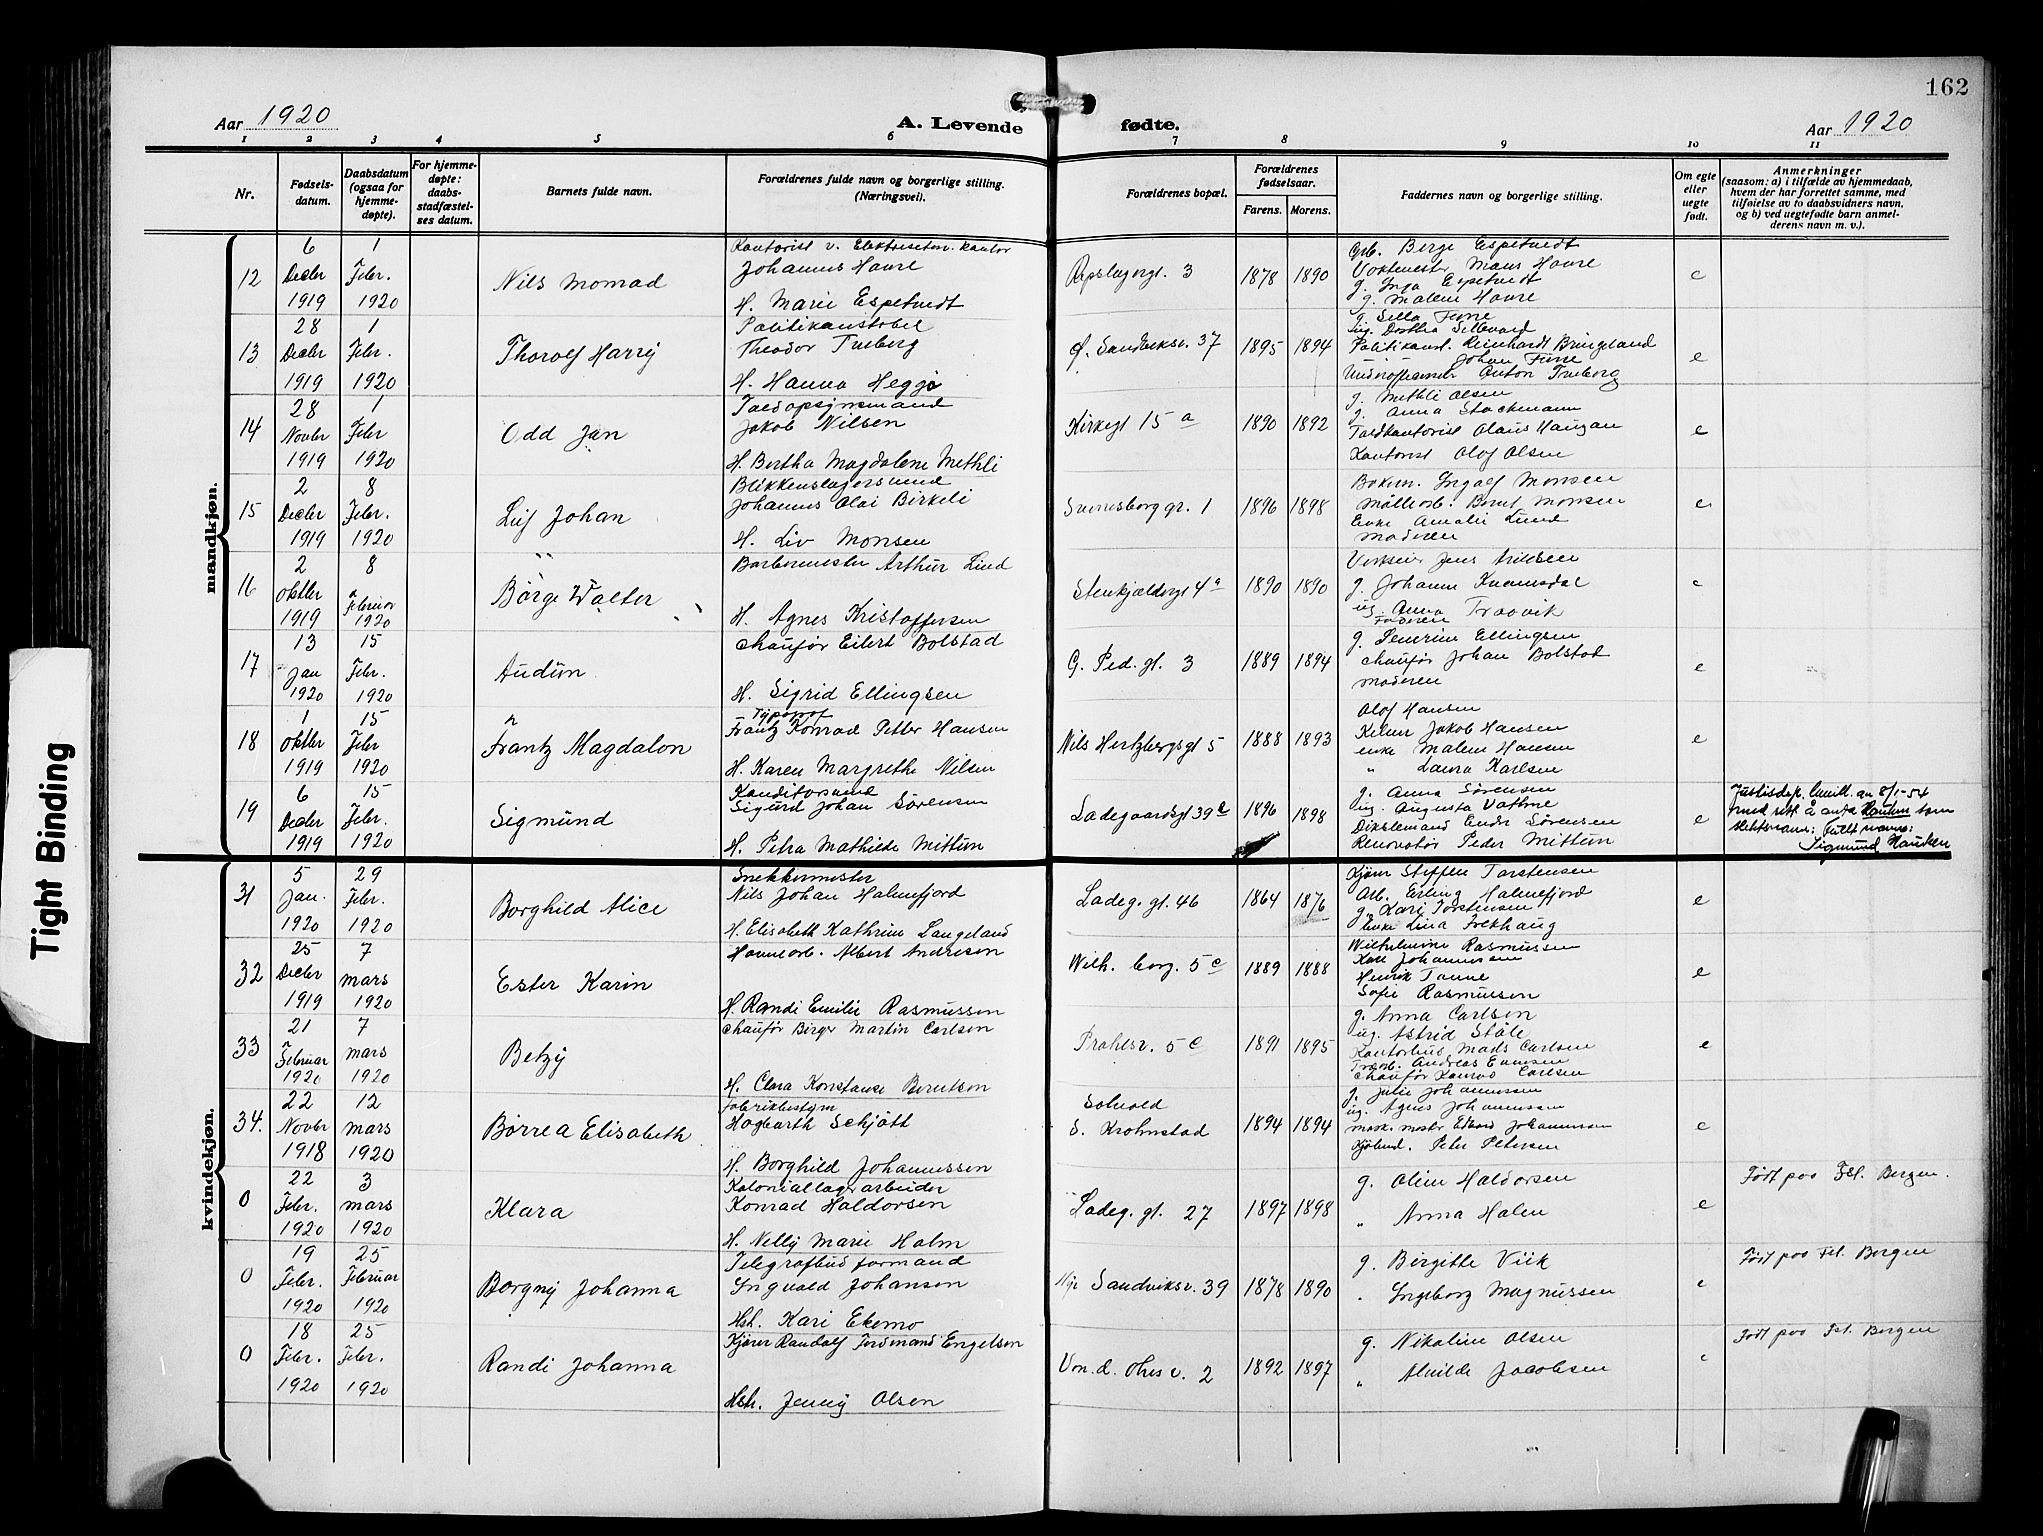 162
Aar 1920
A. Levende
fødte.
Aar 1920
1 2 3 4 5 6 7 8 9 10 11
Nr.
Fødsels-
datum.
Daabsdatum
(ogsaa for
hjemme-
døpte).
For hjemme-
døpte:
daabs-
stadfæstel-
ses datum.
Barnets fulde navn.
Forældrenes fulde navn og borgerlige stilling.
(Næringsvei).
Forældrenes bopæl.
Forældrenes
fødselsaar.
Farens. Morens.
Faddernes navn og borgerlige stilling.
Om egte
eller
uegte
født.
Anmerkninger
(saasom: a) i tilfælde av hjemmedaab,
hvem der har forrettet samme, med
tilføielse av to daabsvidners navn,
og b) ved uegtefødte barn anmel-
derens navn m. v.).
mandkjøn.
12
6 Decbr 1919
1 Febr. 1920
Nils Monrad
Johannes Havre
H. Marie Espetvedt
Repslagergt. 3
1878 1890
Arb. Berge Espetvedt
Mons Havre
g. Inga Espetvedt
g. Malene Havre
e
13
28 Decbr 1919
1 Febr. 1920
Thorolf Harry
Politikonstabel
Theodor Treberg
H. Hanna Heggø
Ø. Sandviksv. 37
1895 1894
Politikonst. Reinhardt Bringeland
Johan
Anton Treberg
e
14
28 Novbr 1919
1 Febr 1920
Odd Jan
Jakob Nilsen
H. Bertha Magdalene Methli
Kirkegt 15 a
1890 1892
g. Methli Olsen
g. Anna Stockmann
Toldkontorist Olaus Haugan
Kontorist Olof Olsen
e
15
2 Decbr 1919
8 Febr. 1920
Leif Johan
Blikkenslagersvend
Johannes Olai Birkeli
H. Liv Monsen
Sverresborg gt. 1
1896 1898
Ingolf Monsen
Møllearb. Bernt Monsen
Enke Amalie Lund
Moderen
e
16
2 Oktbr 1919
8 Februar 1920
Børge Walter
Barbermester Arthur Lind
H. Agnes Kristoffersen
Stenkjeldergt 4 a
1890 1890
g. Johanne Kvamsdal
ug. Anna Traavik
Faderen
e
17
13 Jan 1920
15 Febr. 1920
Audun
Chaufør Eilert Bolstad
H. Sigrid Ellingsen
C. Ped. gt. 3
1889 1894
g. Severine Ellingsen
Chaufør Johan Bolstad
Moderen
e
18
1 Oktbr 1919
15 Febr 1920
Frantz Magdalon
Typograf
Frantz Konrad Petter Hansen
H. Karen Margrethe Nilsen
Nils Hertzbergsgt 5
1888 1893
Olof Hansen
Kelner Jakob Hansen
enke Malene Hansen
" Laura Karlsen
e
19
6 Decbr 1919
15 Febr. 1920
Sigmund
Konditorsvend
Sigurd Johan Sørensen
H. Petra Mathilde Mittun
Ladegaardsgt 39 e
1896 1898
g. Anna Sørensen
ug. Augusta Vatne
Endr Sørensen
Renovatør Peder Mittun
e
Justisdep. bevill. av 8/1-54
med rett å anta Hauken som
slektsnavn; fullt navn:
Sigmund Hauken
kvindekjøn.
31
5 Jan. 1920
29 Febr. 1920
Borghild Alice
Snekkermester
Nils Johan Holmefjord
H. Elisabeth Kathrine Langeland
Ladeg. gt. 46
1864 1876
Kjører Steffen Torstensen
Arb. Erling Holmefjord
g. Kari Torstensen
Enke Lina Frekhaug
e
32
25 Decbr 1919
7 Mars 1920
Ester Karin
Havnearb. Albert Andreson
H. Randi Emilie Rasmussen
Wilh. borg. 5 c
1889 1888
Wilhelmine Rasmussen
Karl Johannessen
Henrik Tonne
Sofie Rasmussen
e
33
21 Februar 1920
7 Mars 1920
Betzy
Chaufør Birger Martin Carlsen
H. Clara Konstanse Berntsen
Prahlsv. 5 c
1891 1895
g. Anna Carlson
ug. Astrid Ståle
Mads Carlsen
Andreas Evensen
Chaufør Konrad Carlsen
e
34.
22 Novbr 1918
12 Mars 1920
Børrea Elisabeth
Fabrikbestyr
Hogbarth Schjøtt
H. Borghild Johannessen
Solvold
S. Krohnstad
1894 1894
g. Julie Johannessen
ug. Agnes Johannessen
Mask. mester Edvard Johannessen
Peter Petersen
e
0
22 Febr. 1920
3 Mars 1920
Klara
Koloniallagerarbeider
Konrad Haldorsen
H. Nelly Marie Holm
Ladeg. gt. 27
1897 1898
g. Oline Haldorsen
" Anna Halen
e
Født paa Fst. Bergen.
0
19 Febr. 1920
25 Februar 1920
Borgny Johanna
Telegrafbud formand
Ingvald Johansen
Hst. Kari Ekemo
Nye Sandviksv. 39
1878 1890
g. Birgitte Viik
" Ingeborg Magnussen
e
Født paa Fst. Bergen
0
18 Febr. 1920
25 Febr. 1920
Randi Johanna
Kjører Randolf Ferdinand Engelsen
Hst. Jenny Olsen
Von. d. Ohes v. 2
1892 1897
g. Nikoline Olsen
" Alvilde Jacobsen
e
Født paa Fst. Bergen
Tight Binding